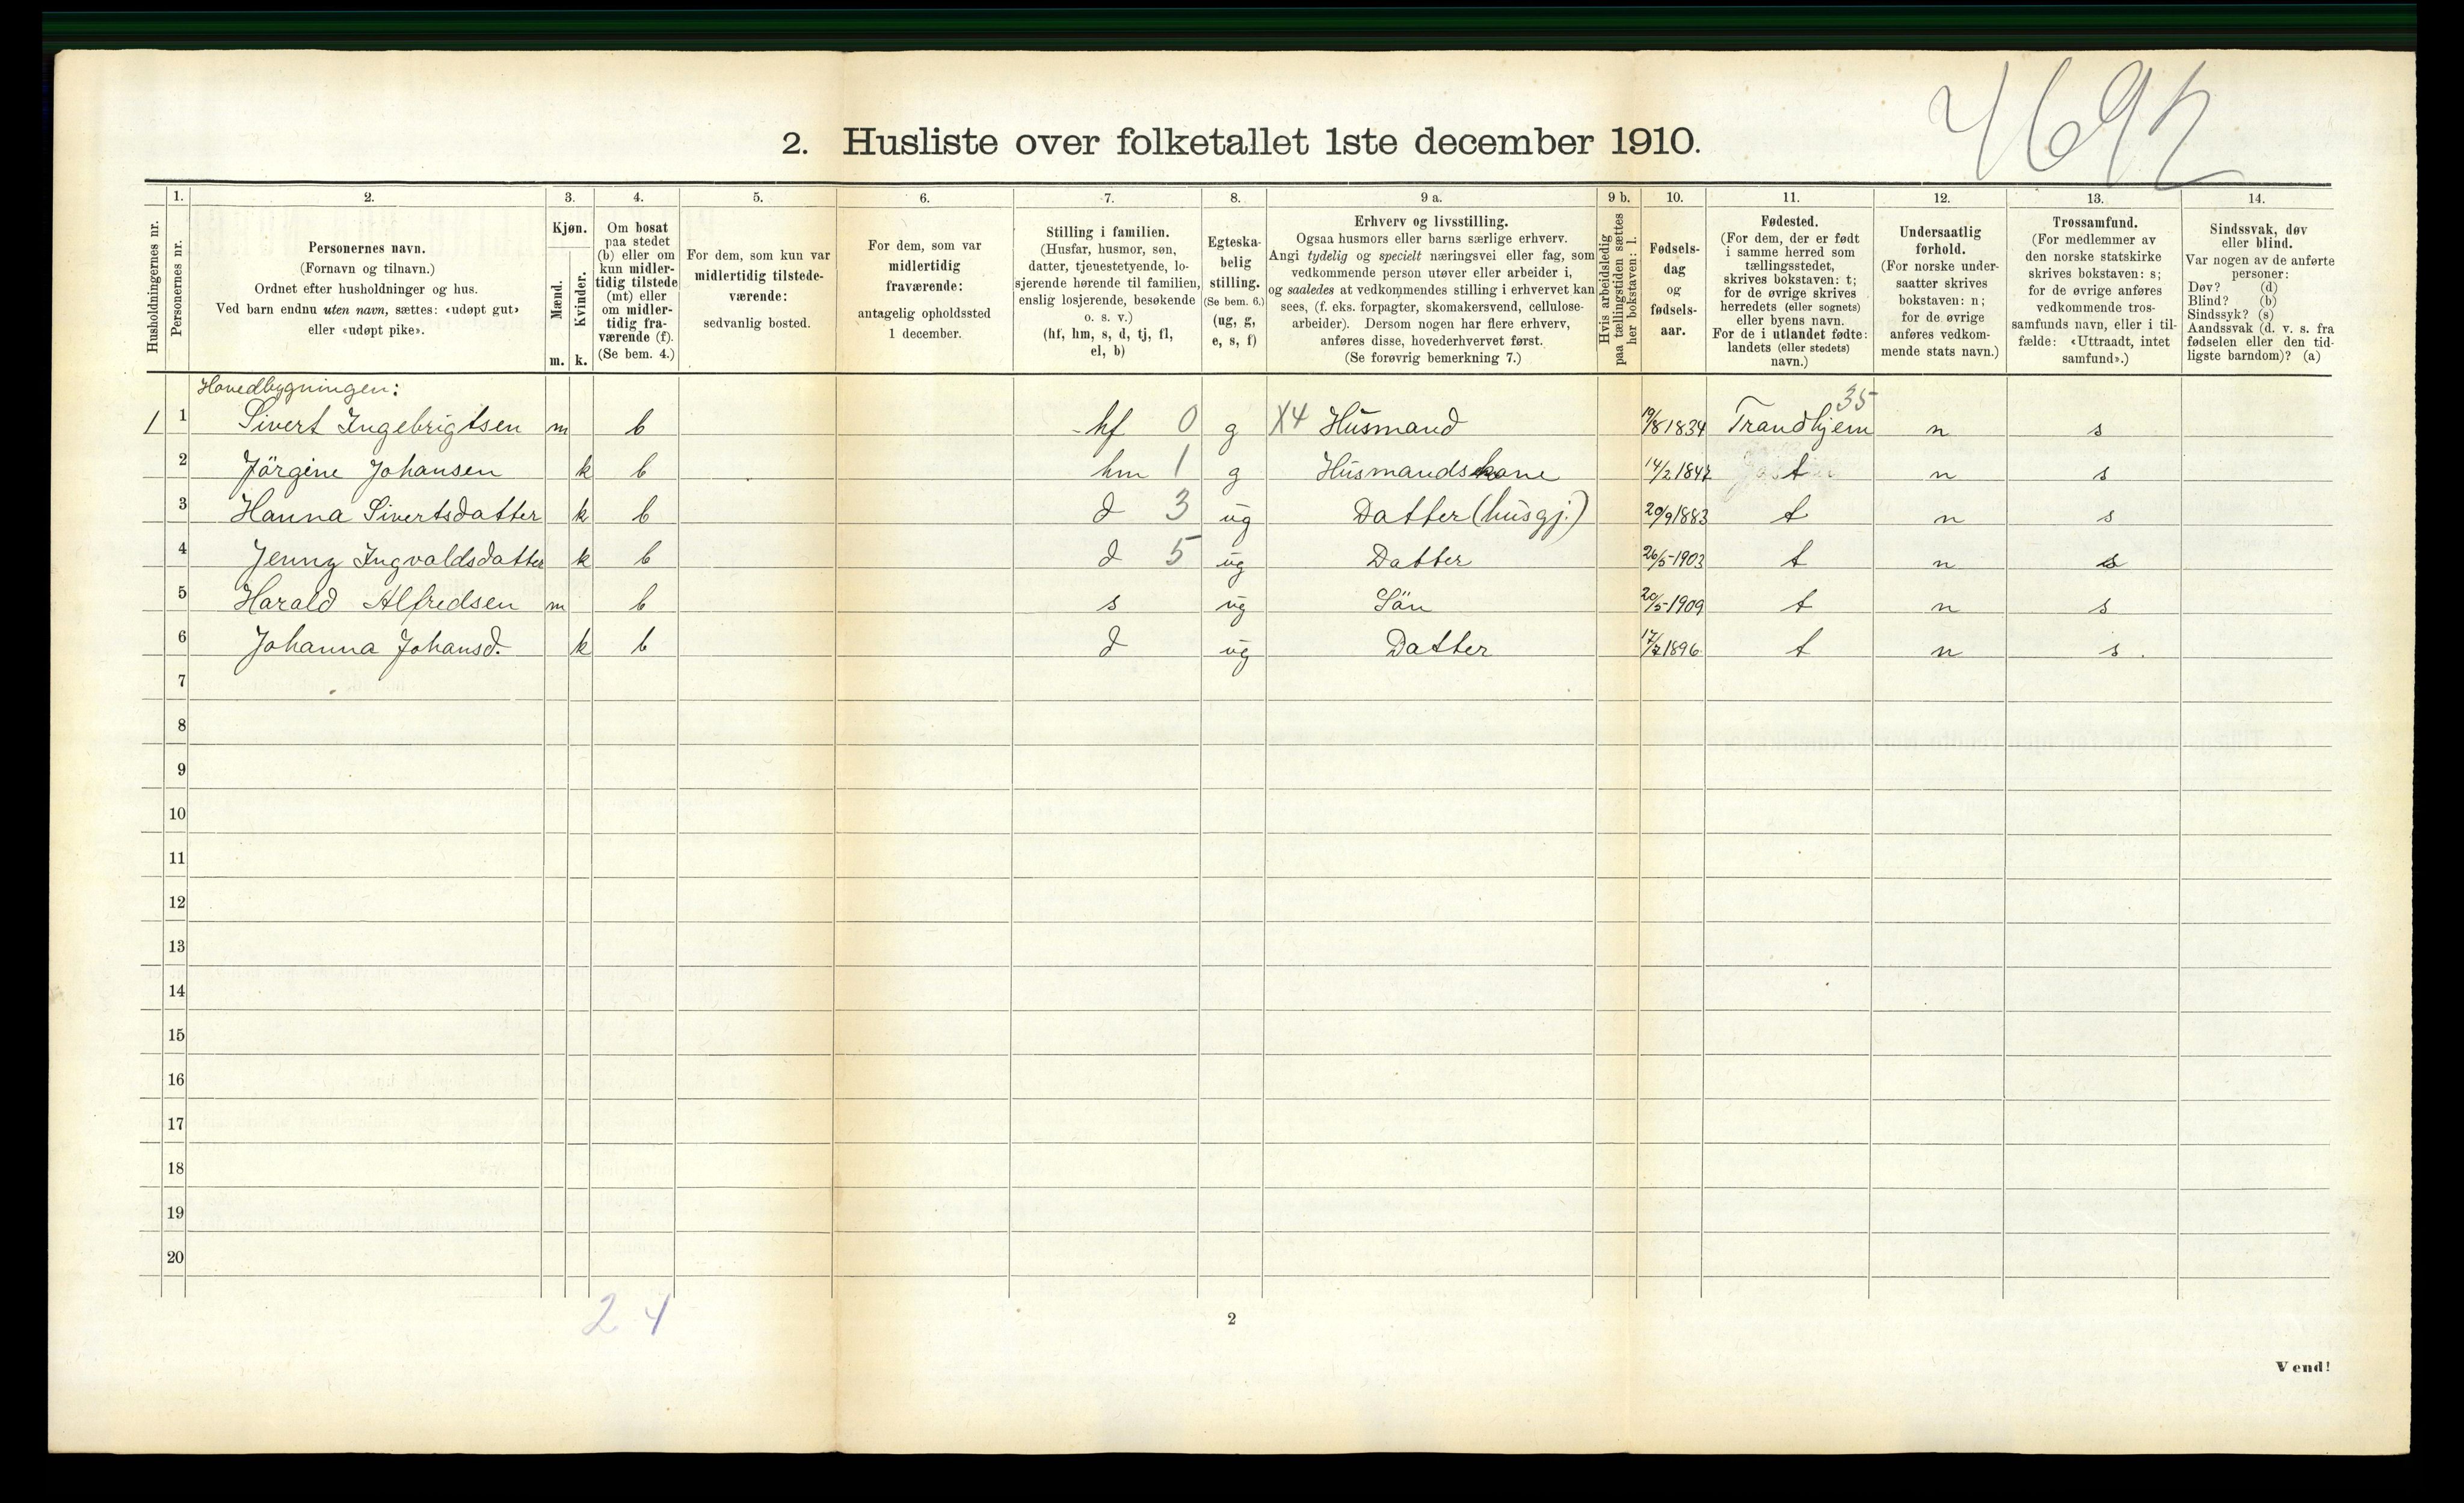 4692
2. Husliste over folketallet 1ste december 1910.
Husholdningernes nr.
1.
Personernes nr.
2.
Personernes navn.
(Fornavn og tilnavn.)
Ordnet efter husholdninger og hus.
Ved barn endnu uten navn, sættes: «udøpt gut»
eller «udøpt pike».
3.
Kjøn.
Mænd.
Kvinder.
m. k.
4.
Om bosat
paa stedet
(b) eller om
kun midler-
tidig tilstede
(mt) eller
om midler-
tidig fra-
værende (f).
(Se bem. 4.)
5.
For dem, som kun var
midlertidig tilstede-
værende:
sedvanlig bosted.
6.
For dem, som var
midlertidig
fraværende:
antagelig opholdssted
1 december.
7.
Stilling i familien.
(Husfar, husmor, søn,
datter, tjenestetyende, lo-
sjerende hørende til familien,
enslig losjerende, besøkende
o. s. v.)
(hf, hm, s, d, tj, fl,
el, b)
8.
Egteska-
belig
stilling.
(Se bem. 6.)
(ug, g,
e, s, f)
9 a.
Erhverv og livsstilling.
Ogsaa husmors eller barns særlige erhverv.
Angi tydelig og specielt næringsvei eller fag, som
vedkommende person utøver eller arbeider i,
og saaledes at vedkommendes stilling i erhvervet kan
sees, (f. eks. forpagter, skomakersvend, cellulose-
arbeider). Dersom nogen har flere erhverv,
anføres disse, hovederhvervet først.
(Se forøvrig bemerkning 7.)
9 b.
Hvis arbeidsledig
paa tællingstiden sættes
her bokstaven: l.
10.
Fødsels-
dag
og
fødsels-
aar.
11.
Fødested.
(For dem, der er født
i samme herred som
tællingsstedet,
skrives bokstaven: t;
for de øvrige skrives
herredets (eller sognets)
eller byens navn.
For de i utlandet fødte:
landets (eller stedets)
navn.)
12.
Undersaatlig
forhold.
(For norske under-
saatter skrives
bokstaven: n;
for de øvrige
anføres vedkom-
mende stats navn.)
13.
Trossamfund.
(For medlemmer av
den norske statskirke
skrives bokstaven: s;
for de øvrige anføres
vedkommende tros-
samfunds navn, eller i til-
fælde: «Uttraadt, intet
samfund».)
14.
Sindssvak, døv
eller blind.
Var nogen av de anførte
personer:
Døv? (d)
Blind? (b)
Sindssyk? (s)
Aandssvak (d. v. s. fra
fødselen eller den tid-
ligste barndom)? (a)
Hovedbygningen: 35
1 1 Sivert Ingebrigtsen m b - hf 0 g X4 Husmand 19/8 1834 Trandhjem n s
2 Jörgine Johansen k b hm 1 g Husmandskone 14/2 1847 t n s
3 Hanna Sivertsdatter k b d 3 ug Datter (husgj.) 20/9 1883 t n s
4 Jenny Ingvaldsdatter k b d 5 ug Datter 26/5-1903 t n s
5 Harald Alfredsen m b s ug Sön 20/5-1909 t n s
6 Johanna Johansd. k b d ug Datter 17/7 1896 t n s.
7
8
9
10
11
12
13
14
15
16
17
18
19
20
2 4
2
Vend!